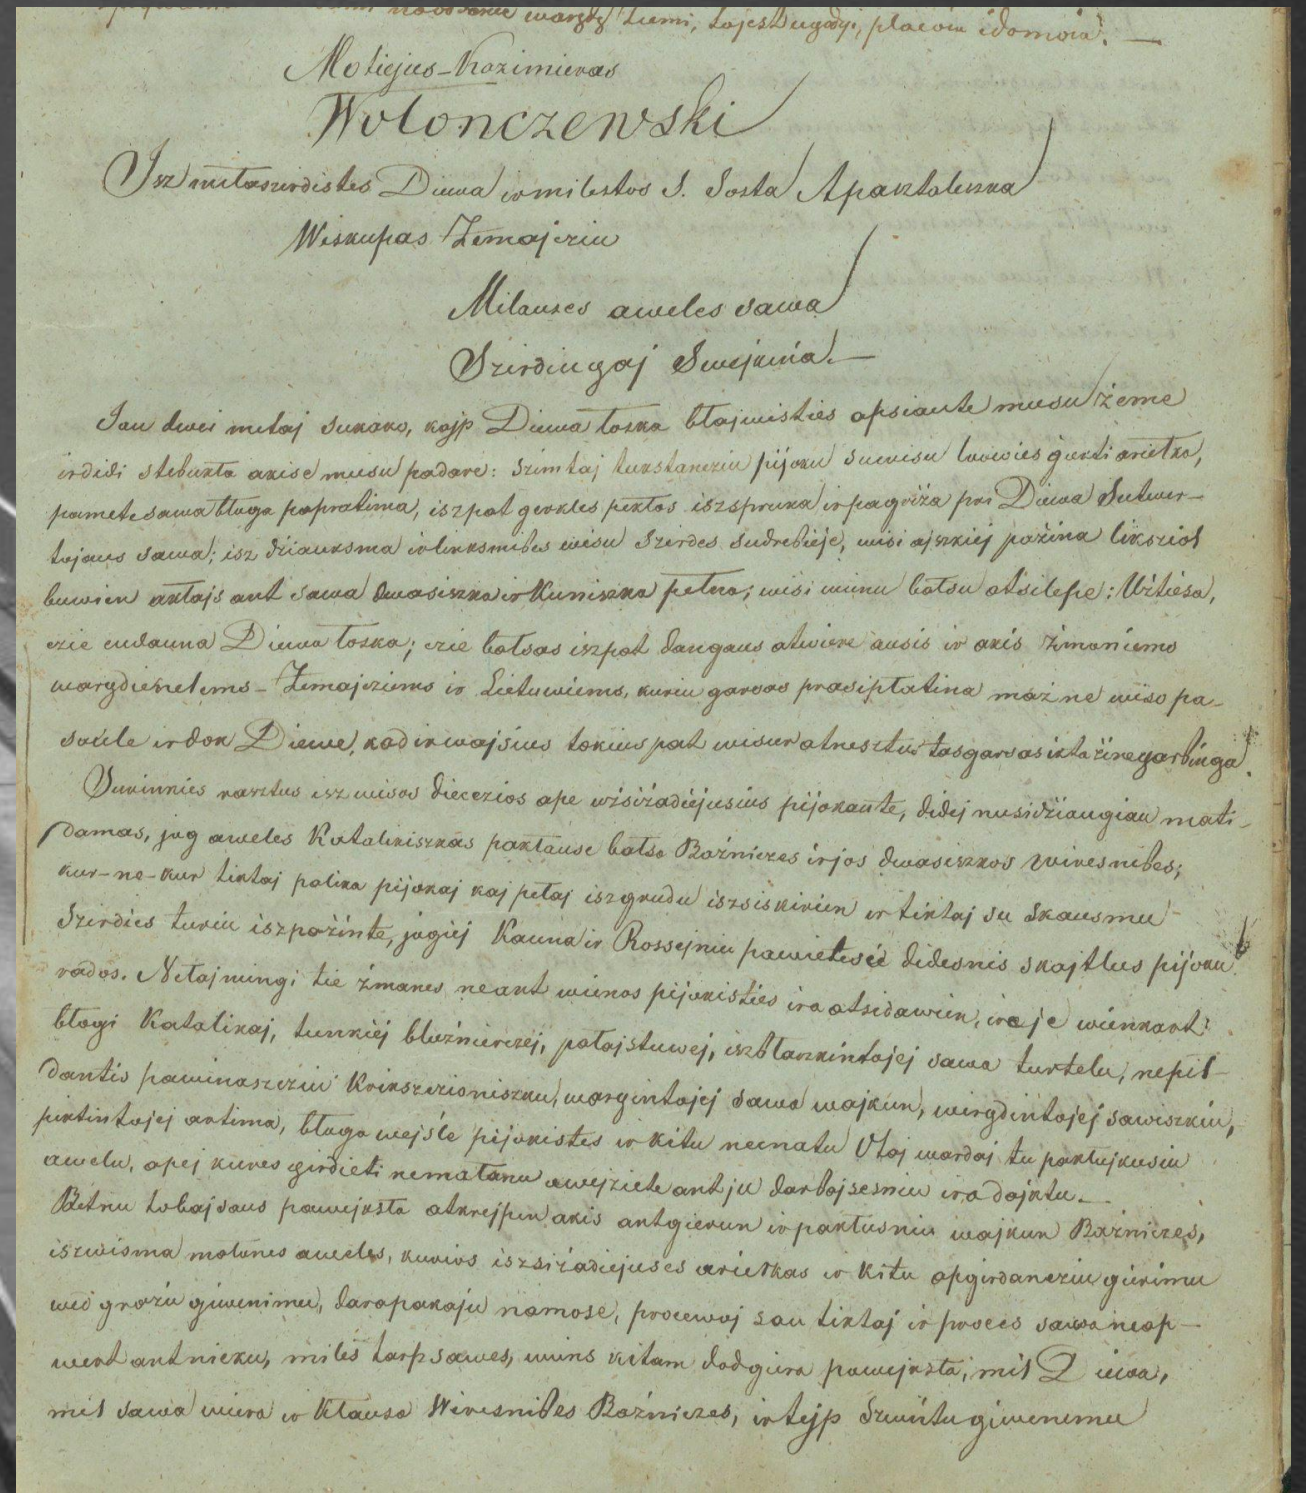 warzdz tiemi, tojest ugodÿi, placoia idomoia. —
Motiejus-Kazimieras
Wolonczewski
Isz miłaszirdistes Diewa ir milestos S. Sosta Apasztaliszka
Wiskupas Żemajcziu
Milauses aweles sawa
Szirdingaj Swejkina. —
Jau dwei metaj sukako, kajp Diewa łoska błajwisties apsiaute musu żeme
ir didi stebukła akise musu padare: szimtaj tukstancziu pijoku suwisu lowies gierti arielko,
pamete sawa błoga papratima, isz pat gerkles pekłos iszspruka ir pagriża pri Diewa Sutwer-
tojaus sawa; isz dżiauksma ir linksmibes wisu szirdes sudrebieje, wisi ajszkiej pażina likszioł
buwien akłajs ant sawa dwasiszka ir kuniszka pełna; wisi winu bałsu atsilepe: Użtiesa,
czie cudauna Diewa łoska; czie bałsas isz pat dangaus atwiere ausis ir akis żmoniems
wargdieneliems - Żemajcziems ir Lietuwiems, kuriu garsas prasipłatina maż ne wiso pa-
saule ir dok Diewe, kad ir wajsius tokius pat wisur atnesztu tas garsas ikta żine garbinga.
Surinnies rasztus isz wisos diecezios ape wisiżadiejusius pijokaute, didej nusidżiaugiau mati-
damas, jog aweles Katalikiszkas pakłause bałsa Bażniczes ir jos dwasiszkos wiresnibes;
kur-ne-kur tiktaj palika pijokaj kaj pełaj isz grudu iszsiskirien ir tiktaj su skausmu
szirdies turiu iszpażinte, jogiej Kauna ir Rossejniu pawietuse didesnis skajtlus pijoku
rados. Nełajmingi tie żmanes ne ant wienos pijokisties ira atsidawien, ira je wienkart
błogi Katalikaj, tunkiej bluźnierczej, pałajstuwej, iszbłaszkintojej sawa turtelu, nepił-
dantis pawinaszcziu krikszczioniszku, wargintojej sawa wajkun, wirgdintojej sawiszkiu,
piktintojej artima, błoga wejśle pijokistes ir kitu necnatu Otaj wardaj tu pakłujkusiu
awelu, apej kures girdieti nemałanu awejziete ant ju darbaj sesmu ira dajktu. —
Betnu łobaj saus pawejksła atkrejpen akis ant gierun ir pakłusniu wajkun Bażniczes,
isz wisma malunes aweles, kurios iszsiżadiejuses arielkas ir kitu apgirdancziu gierimu
wed grażu giwenimu, dara pakaju namose, procewoj sau tiktaj ir proces sawa neap-
wert ant nieku, milis tarp sawes, wins kitam dod giera pawejksła, mił Diewa,
mił sawa wiera ir kłausa Wiresnibes Bażniczes, ir tejp szwintu giwenimu